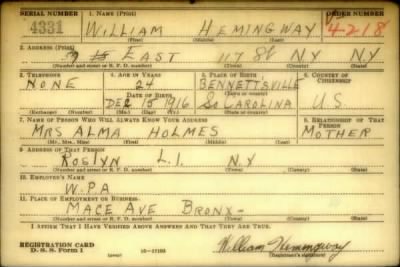 SERIAL NUMBER 1. NAME (Print) ORDER NUMBER
4331 WILLIAM HEMINGWAY 4218
(First) (Middle) (Last)
2. ADDRESS (Print)
EAST 117 St NY NY
(Number and street or R. F. D. number) (Town) (County) (State)
3. TELEPHONE 4. AGE IN YEARS 5. PLACE OF BIRTH 6. COUNTRY OF CITIZENSHIP
NONE 24 BENNETTSVILLE
DATE OF BIRTH (Town or county)
DEC 15 1916 So CAROLINA U.S.
(Exchange) (Number) (Mo.) (Day) (Yr.) (State or country)
7. NAME OF PERSON WHO WILL ALWAYS KNOW YOUR ADDRESS 8. RELATIONSHIP OF THAT PERSON
MRS ALMA HOLMES MOTHER
(Mr., Mrs., Miss) (First) (Middle) (Last)
9. ADDRESS OF THAT PERSON
ROSLYN L.I. N.Y
(Number and street or R. F. D. number) (Town) (County) (State)
10. EMPLOYER'S NAME
W.P.A
11. PLACE OF EMPLOYMENT OR BUSINESS
MACE AVE BRONX-
(Number and street or R. F. D. number) (Town) (County) (State)
I AFFIRM THAT I HAVE VERIFIED ABOVE ANSWERS AND THAT THEY ARE TRUE.
REGISTRATION CARD
D. S. S. Form 1 (over) William Hemingway
(Registrant's signature)